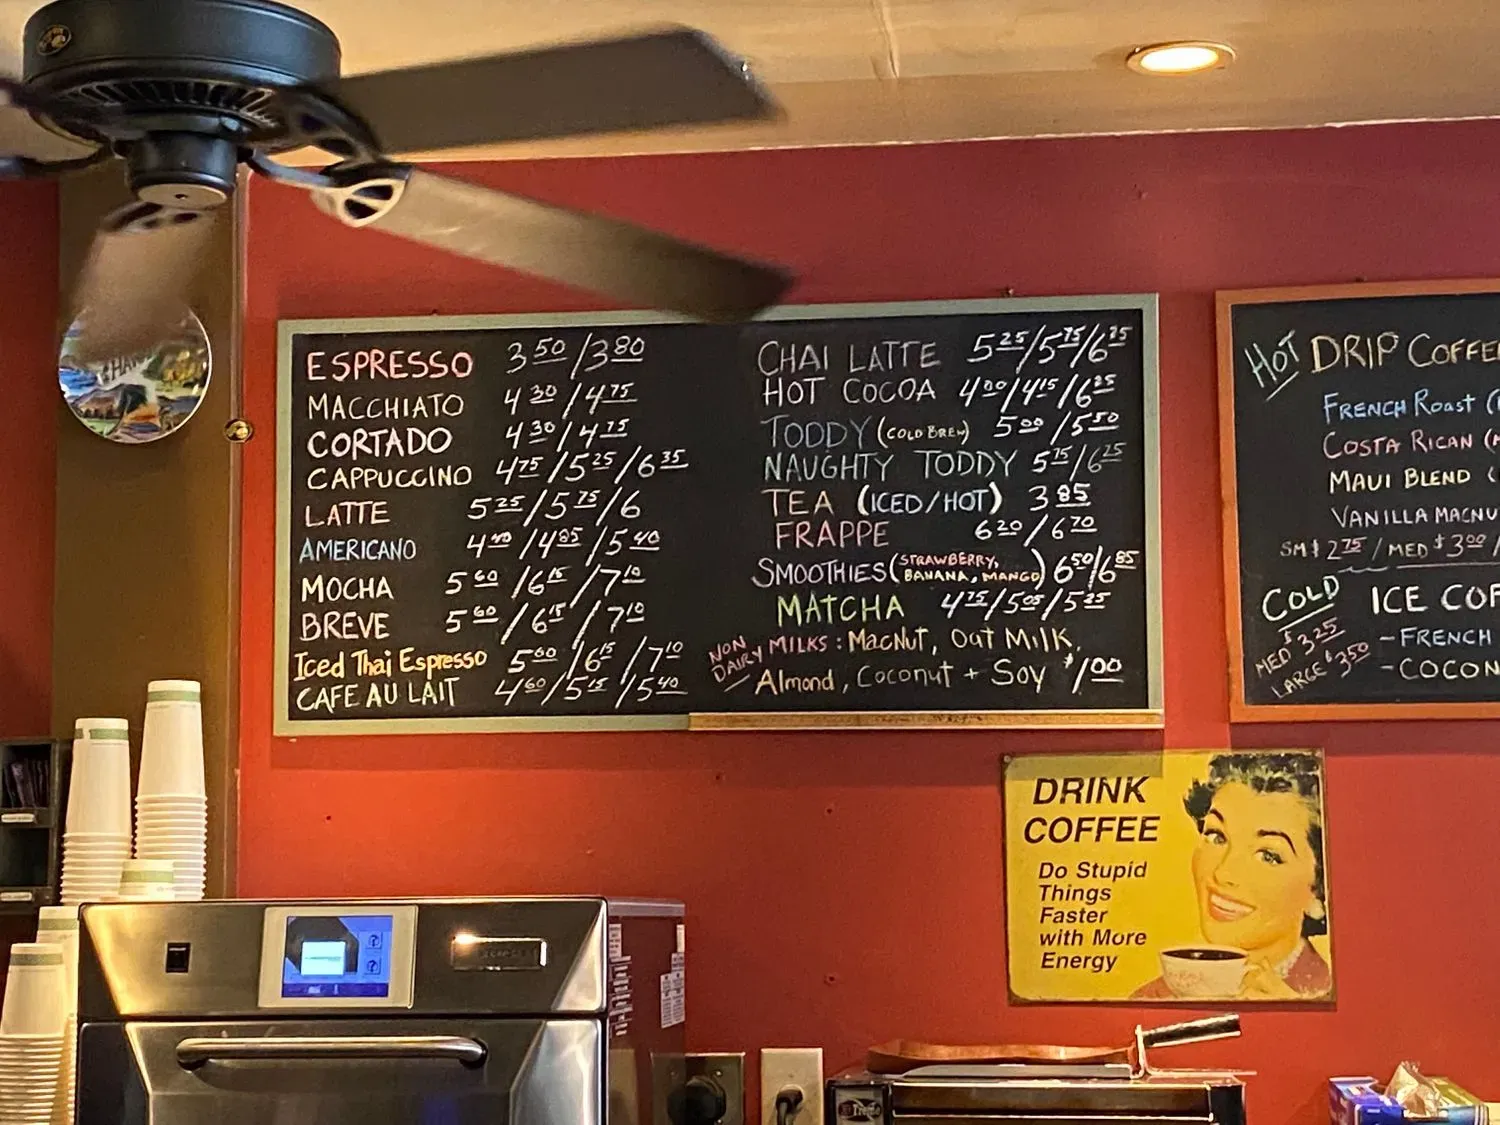 ESPRESSO 3.50/3.80
MACCHIATO 4.30/4.75
CORTADO 4.30/4.75
CAPPUCCINO 4.75/5.25/6.35
LATTE 5.25/5.75/6
AMERICANO 4.40/4.85/5.40
MOCHA 5.60/6.15/7.10
BREVE 5.60/6.15/7.10
Iced Thai Espresso 5.60/6.15/7.10
CAFE AU LAIT 4.60/5.15/5.40
CHAI LATTE 5.25/5.75/6.25
HOT COCOA 4.00/4.15/6.25
TODDY (COLD BREW) 5.00/5.50
NAUGHTY TODDY 5.75/6.25
TEA (ICED/HOT) 3.85
FRAPPE 6.20/6.70
SMOOTHIES (STRAWBERRY, BANANA, MANGO) 6.50/6.85
MATCHA 4.75/5.05/5.25
NON DAIRY MILKS: MacNut, Oat Milk,
Almond, Coconut + Soy $1.00
HOT DRIP COFFE
FRENCH ROAST (
COSTA RICAN (
MAUI BLEND (
VANILLA MACNU
SM $2.75 / MED $3.00 /
COLD ICE COF
MED $3.25
LARGE $3.50
- FRENCH
- COCON
DRINK
COFFEE
Do Stupid
Things
Faster
with More
Energy